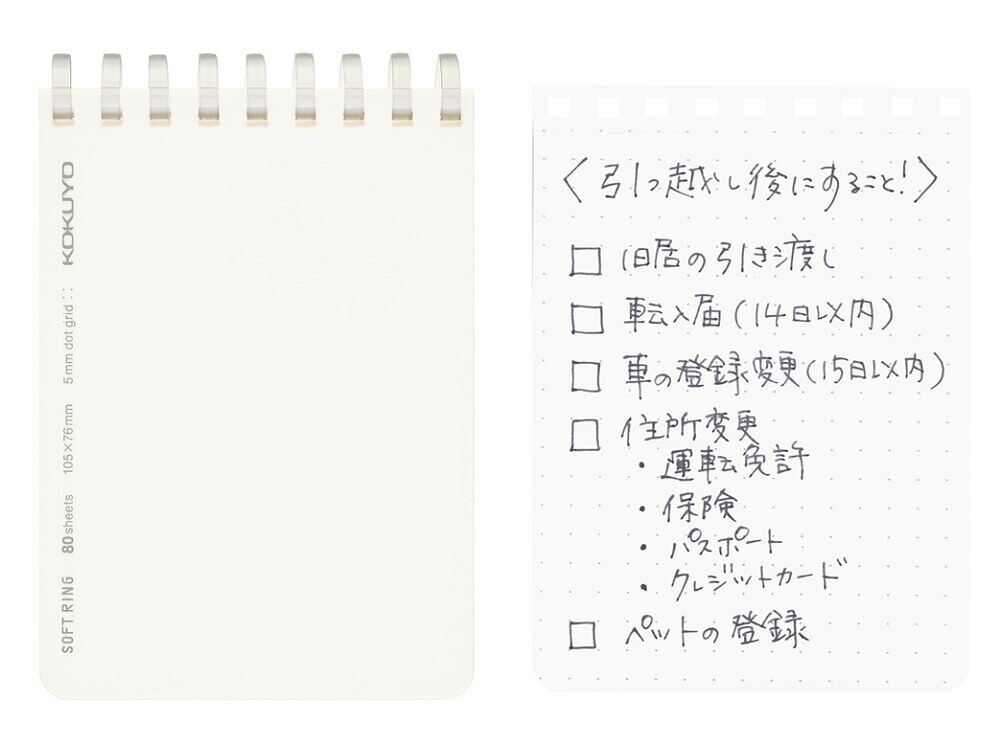 KOKUYO
5mm dot grid
105×76mm
80sheets
SOFT RING
〈引っ越し後にすること!〉
□ 旧居の引き渡し
□ 転入届(14日以内)
□ 車の登録変更(15日以内)
□ 住所変更
・運転免許
・保険
・パスポート
・クレジットカード
□ ペットの登録